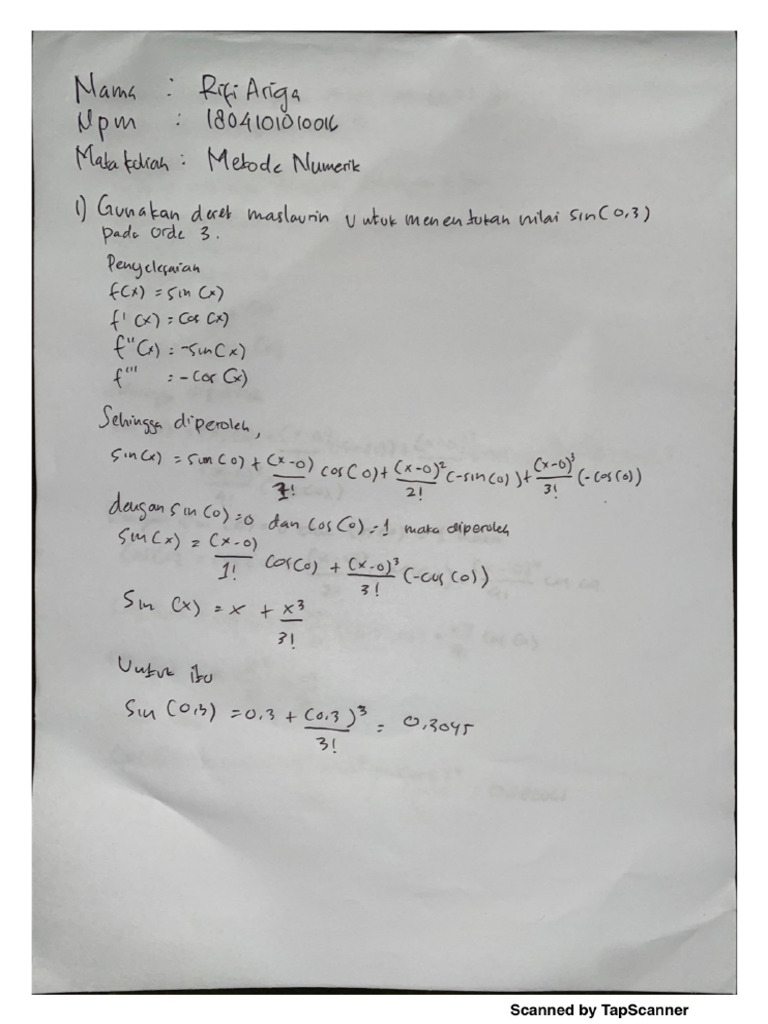 Nama : Rifi Ariga
Npm : 1804101010016
Mata kuliah : Metode Numerik
1) Gunakan deret maslaurin untuk menentukan nilai sin(0,3)
pada orde 3.
Penyelesaian
f(x) = sin(x)
f'(x) = cos(x)
f''(x) = -sin(x)
f''' = -cos(x)
Sehingga diperoleh,
sin(x) = sin(0) + (x-0)/1! cos(0) + (x-0)²/2! (-sin(0)) + (x-0)³/3! (-cos(0))
dengan sin(0)=0 dan cos(0)=1 maka diperoleh
sin(x) = (x-0)/1! cos(0) + (x-0)³/3! (-cos(0))
Sin(x) = x + x³/3!
Untuk itu
Sin(0,3) = 0,3 + (0,3)³/3! = 0,3045
Scanned by TapScanner